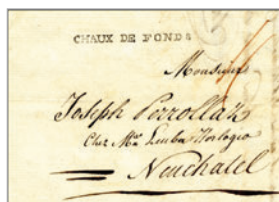 CHAUX DE FONDS
Monsieur
Joseph Perrollaz
Chez Mr. Leuba Horloger
Neuchatel